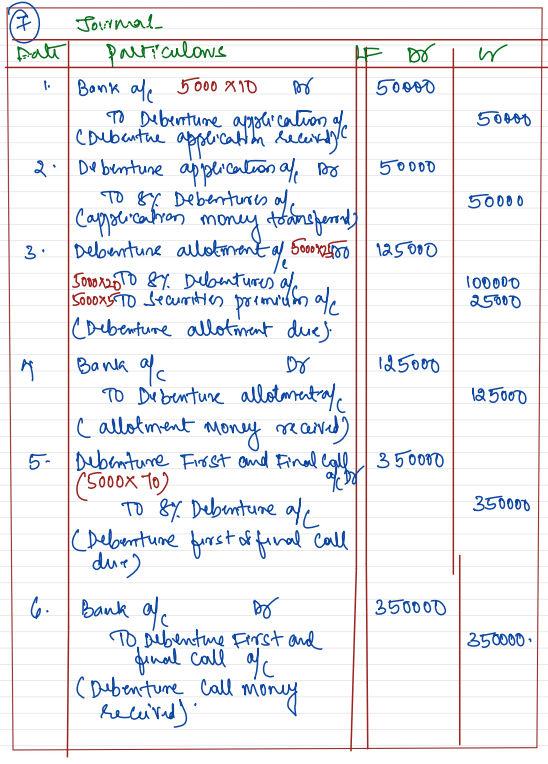 7 Journal
Date Particulars LF Dr Cr
1. Bank a/c 5000 X10 Dr 50000
To Debenture application a/c 50000
(Debentue application received)
2. Debenture application a/c Dr 50000
To 8% Debentures a/c 50000
(application money transferred)
3. Debenture allotment a/c 5000X25 Dr 125000
5000X20 To 8% Debentures a/c 100000
5000X5 To Securities premium a/c 25000
(Debenture allotment due).
4 Bank a/c Dr 125000
To Debenture allotment a/c 125000
(allotment money received)
5- Debenture First and Final Call 350000
(5000X 70) a/c Dr
To 8% Debenture a/c 350000
(Debenture first & final call
due)
6. Bank a/c Dr 350000
To Debenture First and 350000.
final call a/c
(Debenture Call money
received).